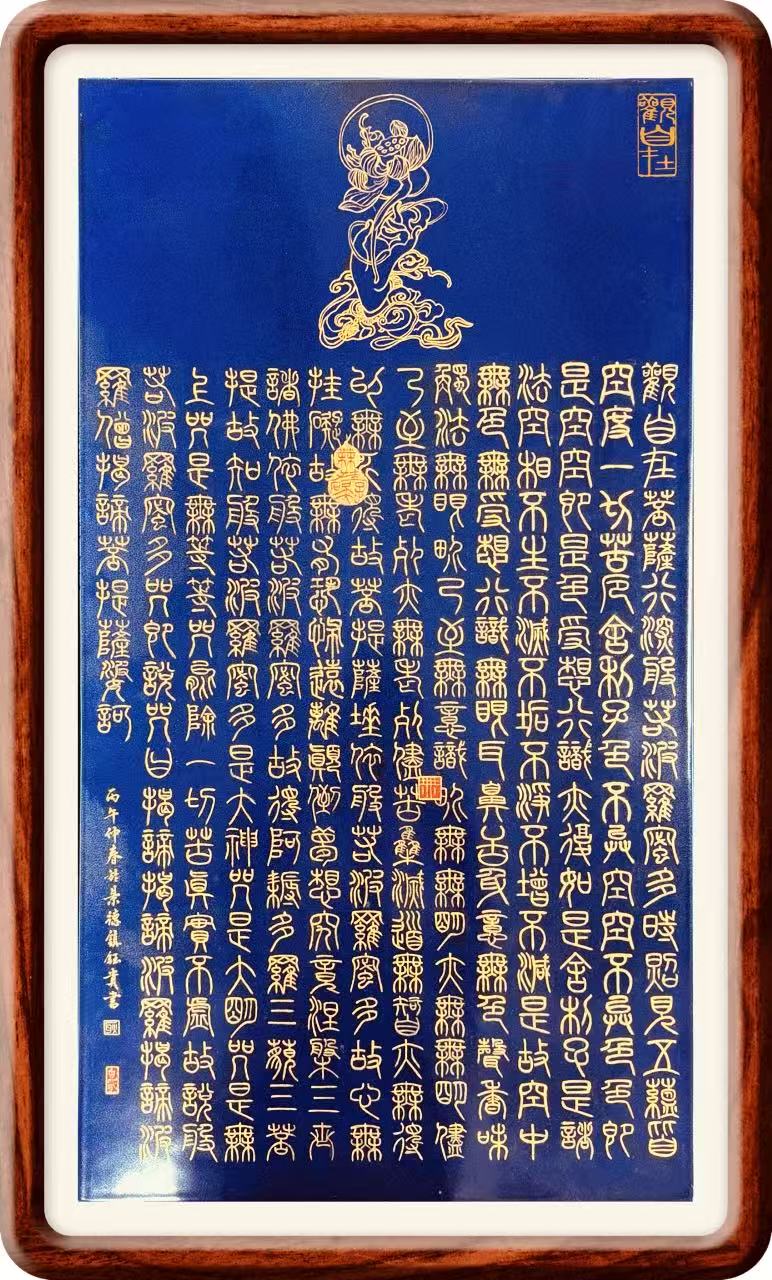 觀自在
觀自在菩薩行深般若波羅蜜多時照見五蘊皆
空度一切苦厄舍利子色不異空空不異色色即
是空空即是色受想行識亦復如是舍利子是諸
法空相不生不滅不垢不淨不增不減是故空中
無色無受想行識無眼耳鼻舌身意無色聲香味
觸法無眼界乃至無意識界無無明亦無無明盡
乃至無老死亦無老死盡苦集滅道無智亦無得
以無所得故菩提薩埵依般若波羅蜜多故心無
挂礙故無有恐怖遠離顛倒夢想究竟涅槃三世
諸佛依般若波羅蜜多故得阿耨多羅三藐三菩
提故知般若波羅蜜多是大神咒是大明咒是無
上咒是無等等咒能除一切苦真實不虛故說般
若波羅蜜多咒即說咒曰揭諦揭諦波羅揭諦波
羅僧揭諦菩提薩婆訶
丙午仲春於景德鎮鈺貴書